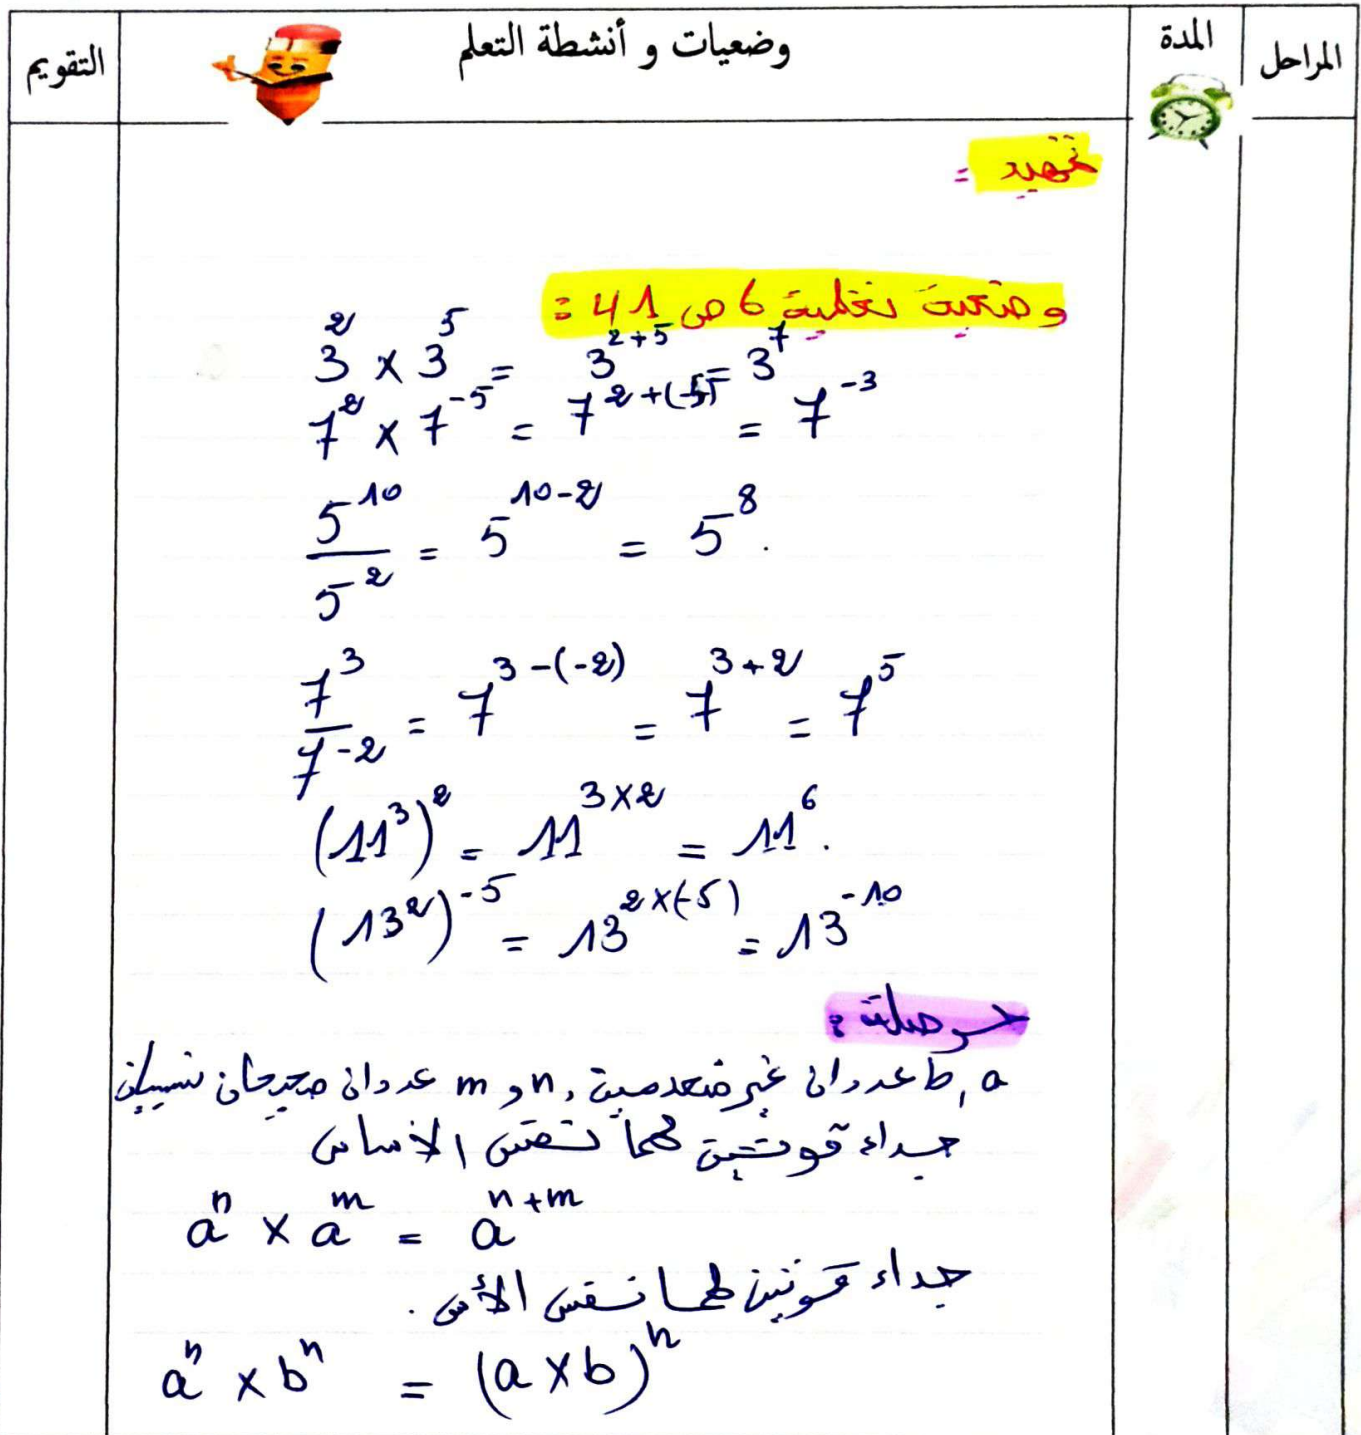 المراحل
المدة
وضعيات و أنشطة التعلم
التقويم
تمهيد =
وضعية تعلمية 6 ص 41 =
3² × 3⁵ = 3²⁺⁵ = 3⁷
7² × 7⁻⁵ = 7²⁺⁽⁻⁵⁾ = 7⁻³
5¹⁰/5² = 5¹⁰⁻² = 5⁸.
7³/7⁻² = 7³⁻⁽⁻²⁾ = 7³⁺² = 7⁵
(11³)² = 11³ˣ² = 11⁶.
(13²)⁻⁵ = 13²ˣ⁽⁻⁵⁾ = 13⁻¹⁰
حوصلة :
a, b عددان غير منعدمين, n و m عددان صحيحان نسبيان
جداء قوتين لهما نفس الاساس
aⁿ × aᵐ = aⁿ⁺ᵐ
جداء قوتين لهما نفس الأس.
aⁿ × bⁿ = (a × b)ⁿ